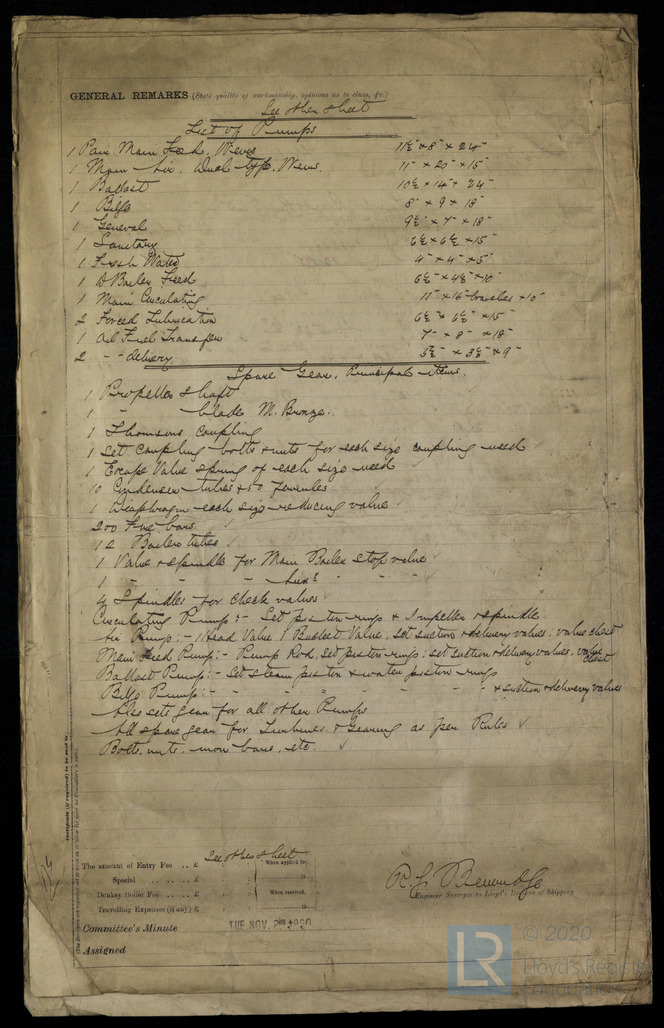 GENERAL REMARKS (State quality of workmanship, opinions as to class, &c.)
See other sheet
List of Pumps
1 Pair Main Feed. Weirs 11½" × 8" × 24"
1 Main Air. Dual type. Weirs. 11" × 20" × 15"
1 Ballast 10½ × 14" × 24"
1 Bilge 8" × 9 × 18"
1 General 9½" × 7" × 18"
1 Sanitary 6½ × 6½ × 15"
1 Fresh Water 4" × 4" × 5"
1 D Boiler Feed 6½" × 4½" × 10"
1 Main Circulating 11" × 16" branches × 10"
2 Forced Lubrication 6½" × 6½" × 15"
1 Oil Fuel Transfer 7" × 8" × 18"
2 " " delivery 5½" × 3½" × 9"
Spare Gear. Principal items.
1 Propeller shaft
1 " blade M. Bronze.
1 Thomsons coupling
1 Set Coupling bolts & nuts for each size coupling used
1 Escape Valve spring of each size used
10 Condenser tubes & 50 ferrules
1 Diaphragm each size reducing valve
200 Fire bars
12 Boiler tubes
1 Valve & spindle for Main Boiler stop valve
1 " " " Aux " " "
4 Spindles for check valves
Circulating Pump:- Set piston rings & Impeller & spindle
Air Pump:- 1 Head Valve 1 Bucket Valve, set suction & delivery valves, valve chest
Main Feed Pump:- Pump Rod, set piston rings, set suction & delivery valves, valve chest
Ballast Pump:- Set steam piston & water piston rings
Bilge Pump:- " " " " " " & suction & delivery valves
Also sets gear for all other Pumps
All spare gear for Turbines & Gearing as per Rules
Bolts, nuts, iron bars, etc.
The amount of Entry Fee .. £ See other sheet When applied for,
Special .. .. .. £
Donkey Boiler Fee .. .. £ When received,
Travelling Expenses (if any) £
Engineer Surveyor to Lloyd's Register of Shipping
Committee's Minute TUE. NOV. 2 1920
Assigned
LR © 2020
Lloyd's Register